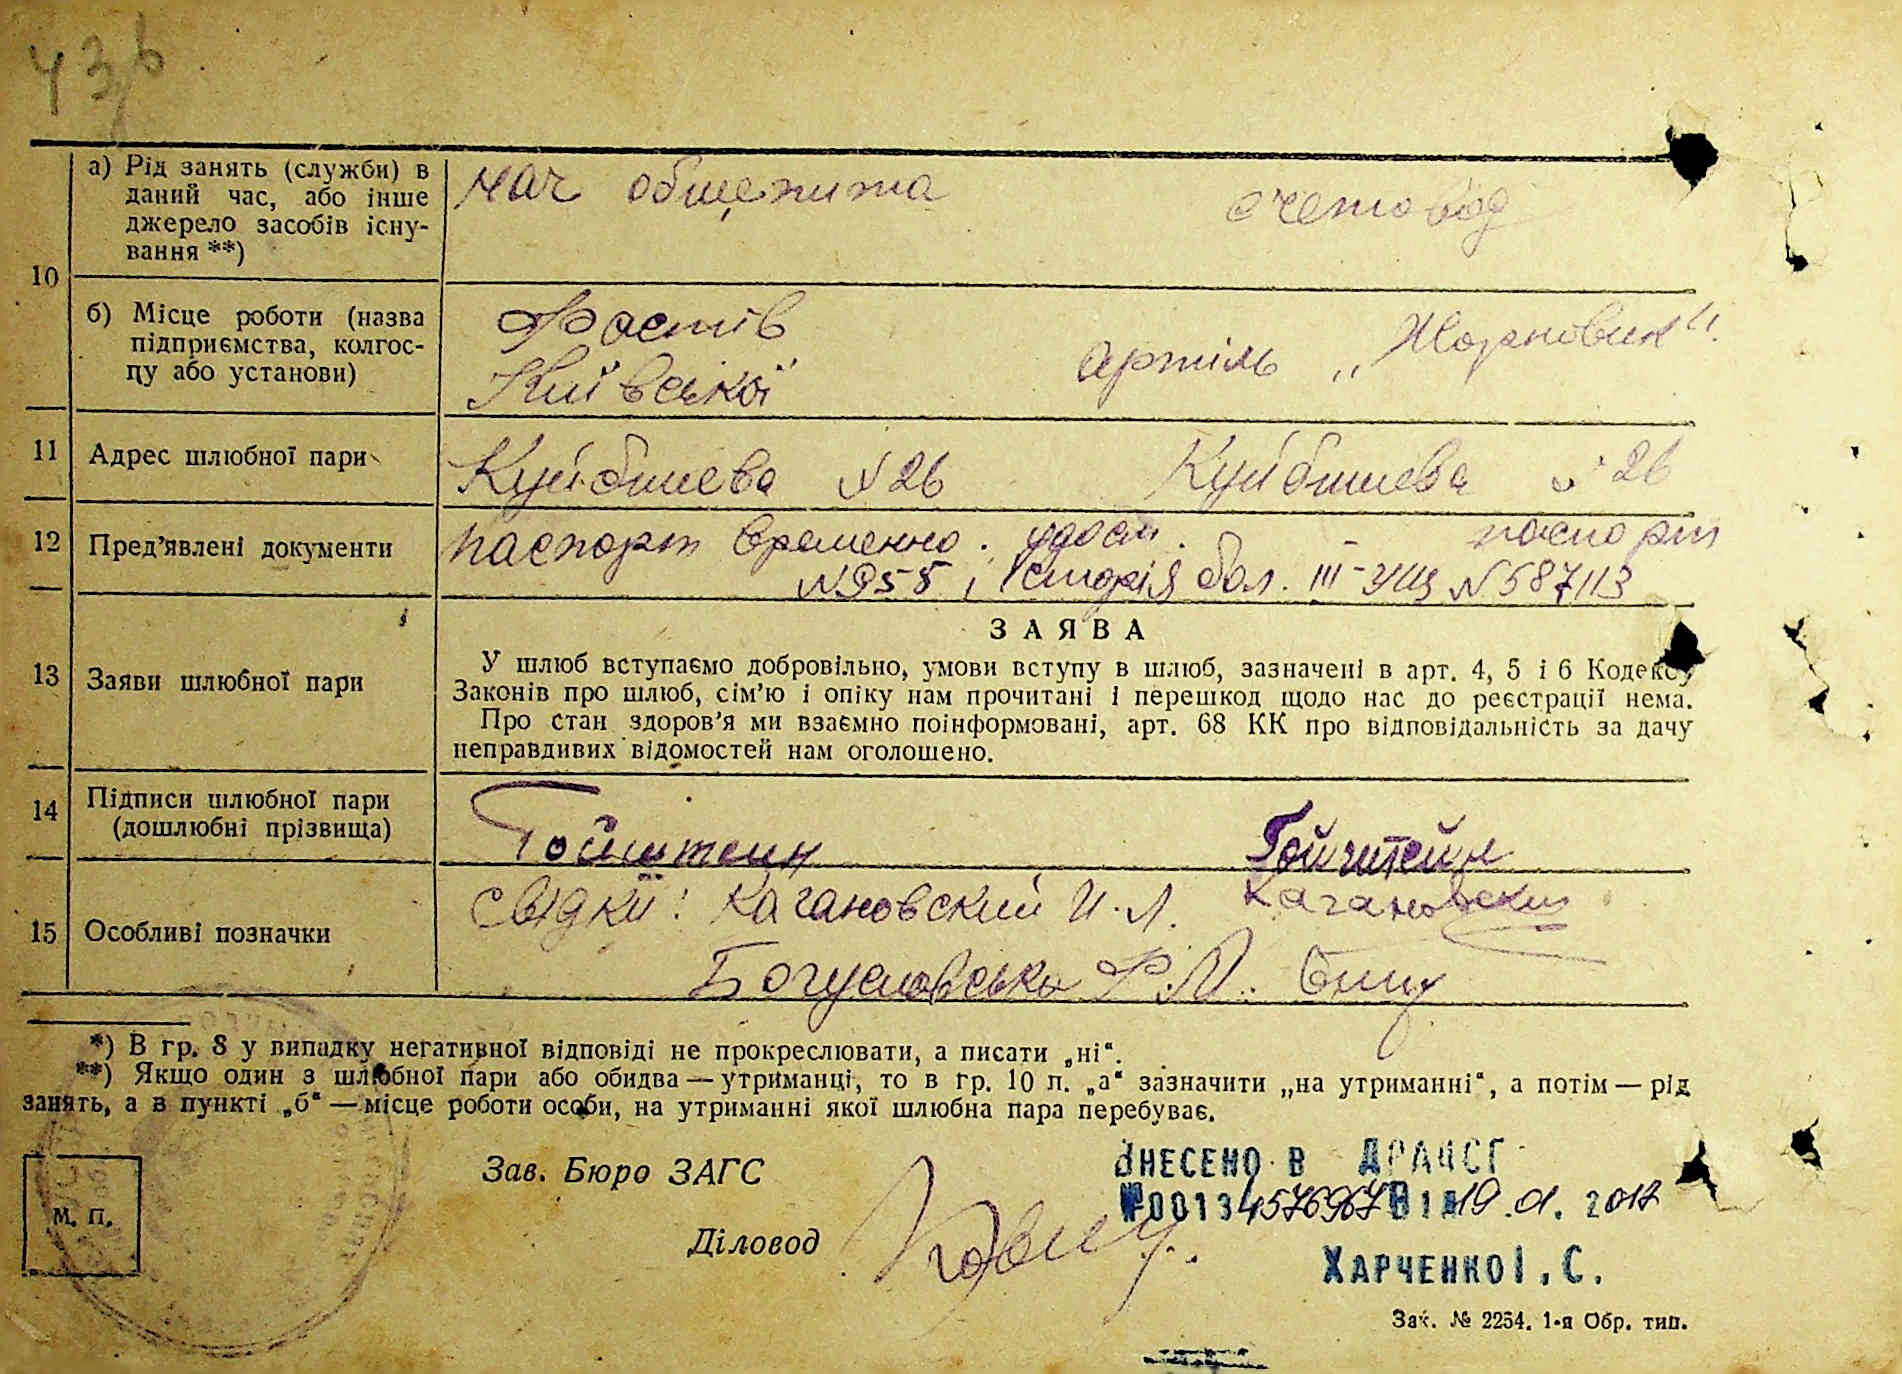 43б
а) Рід занять (служби) в
даний час, або інше
джерело засобів існу-
вання **)
нач общежита
счетовод
10
б) Місце роботи (назва
підприємства, колгос-
пу або установи)
Фастів
Київської
артіль „Жорновик".
11 Адрес шлюбної пари
Куйбишева №26 Куйбишева № 26
12 Пред’явлені документи
паспорт временно. удост. - паспорт
№955 і III-УЩ №587113
ЗАЯВА
13 Заяви шлюбної пари
У шлюб вступаємо добровільно, умови вступу в шлюб, зазначені в арт. 4, 5 і 6 Кодексу
Законів про шлюб, сім’ю і опіку нам прочитані і перешкод щодо нас до реєстрації нема.
Про стан здоров’я ми взаємно поінформовані, арт. 68 КК про відповідальність за дачу
неправдивих відомостей нам оголошено.
14 Підписи шлюбної пари
(дошлюбні прізвища)
Гойштеин Гойчштейн
15 Особливі позначки
свідки: Кагановский И. Л. Кагановский
Богуславська Ф. М.
*) В гр. 8 у випадку негативної відповіді не прокреслювати, а писати „ні“.
**) Якщо один з шлюбної пари або обидва — утриманці, то в гр. 10 п. „а“ зазначити „на утриманні“, а потім — рід
занять, а в пункті „б“ — місце роботи особи, на утриманні якої шлюбна пара перебуває.
М. П.
Зав. Бюро ЗАГС
Діловод
ВНЕСЕНО В ДРАЦСГ
№00134576967 ВІД 19.01.2017
ХАРЧЕНКО І. С.
Зак. № 2254. 1-я Обр. тип.